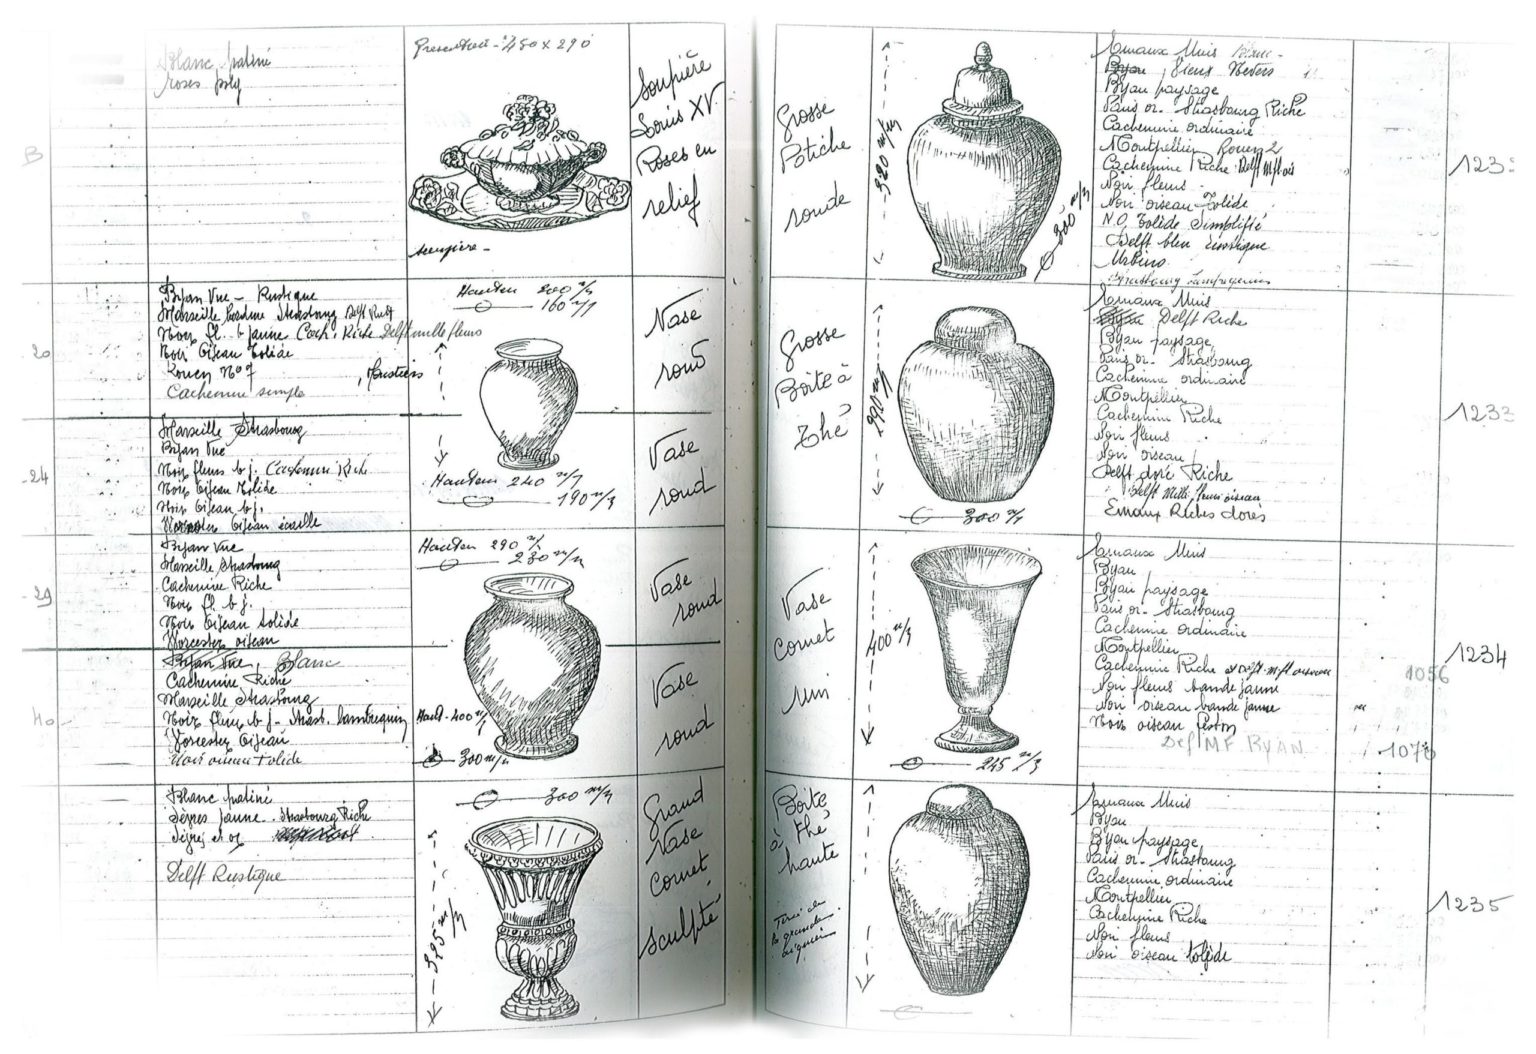 Blanc patiné
roses poly
B
Presentoir - 450 x 290
soupière -
Soupière
Louis XV
Roses en
relief
Byan Vue - Rustique
Marseille Strasbourg Delft Rust
Noir fl. b jaune Cach. Riche Delft mille fleurs
Noir Oiseau Tolède
Rouen N° 7 , Moustiers
Cachemire simple
20
Hauteur 200 m/m
160 m/m
Vase
rond
Marseille Strasbourg
Byan Vue
Noir fleurs b j. Cachemire Riche
Noir Oiseau Tolède
Noir Oiseau b j.
Worcester Oiseau écaille
24
Hauteur 240 m/m
190 m/m
Vase
rond
Byan Vue
Marseille Strasbourg
Cachemire Riche
Noir fl. b j.
Noir Oiseau Tolède
Worcester oiseau
29
Hauteur 290 m/m
230 m/m
Vase
rond
Byan Vue, Blanc
Cachemire Riche
Marseille Strasbourg
Noir fleurs b j - Strasb. lambrequin
Worcester Oiseau
Noir oiseau Tolède
40
Haut - 400 m/m
300 m/m
Vase
rond
Blanc patiné
Sèvres jaune - Strasbourg Riche
Sèvres et or
Delft Rustique
300 m/m
395 m/m
Grand
Vase
Cornet
sculpté
Grosse
Potiche
ronde
520 m/m
300 m/m
Emaux Unis
Byan, Vieux Nevers
Byan paysage
Paris or - Strasbourg Riche
Cachemire ordinaire
Montpellier Rouen 2
Cachemire Riche Delft M fl ois
Noir fleurs
Noir oiseau Tolède
N.O. Tolède Simplifié
Delft bleu rustique
Urbino
Strasbourg Lambrequin
Grosse
Boîte à
Thé
390 m/m
300 m/m
Emaux Unis
Byan Delft Riche
Byan paysage
Paris or - Strasbourg
Cachemire ordinaire
Montpellier
Cachemire Riche
Noir fleurs
Noir oiseau
Delft doré Riche
Delft Mille fleurs oiseau
Emaux Riches dorés
1233
Vase
cornet
uni
400 m/m
245 m/m
Emaux Unis
Byan
Byan paysage
Paris or - Strasbourg
Cachemire ordinaire
Montpellier
Cachemire Riche et Delft m fl oiseau
Noir fleurs bande jaune
Noir oiseau bande jaune
Noir oiseau feston
Delf MF BYAN
1056
1073
1234
Boîte
à thé
haute
Emaux Unis
Byan
Byan paysage
Paris or - Strasbourg
Cachemire ordinaire
Montpellier
Cachemire Riche
Noir fleurs
Noir oiseau tolède
1235